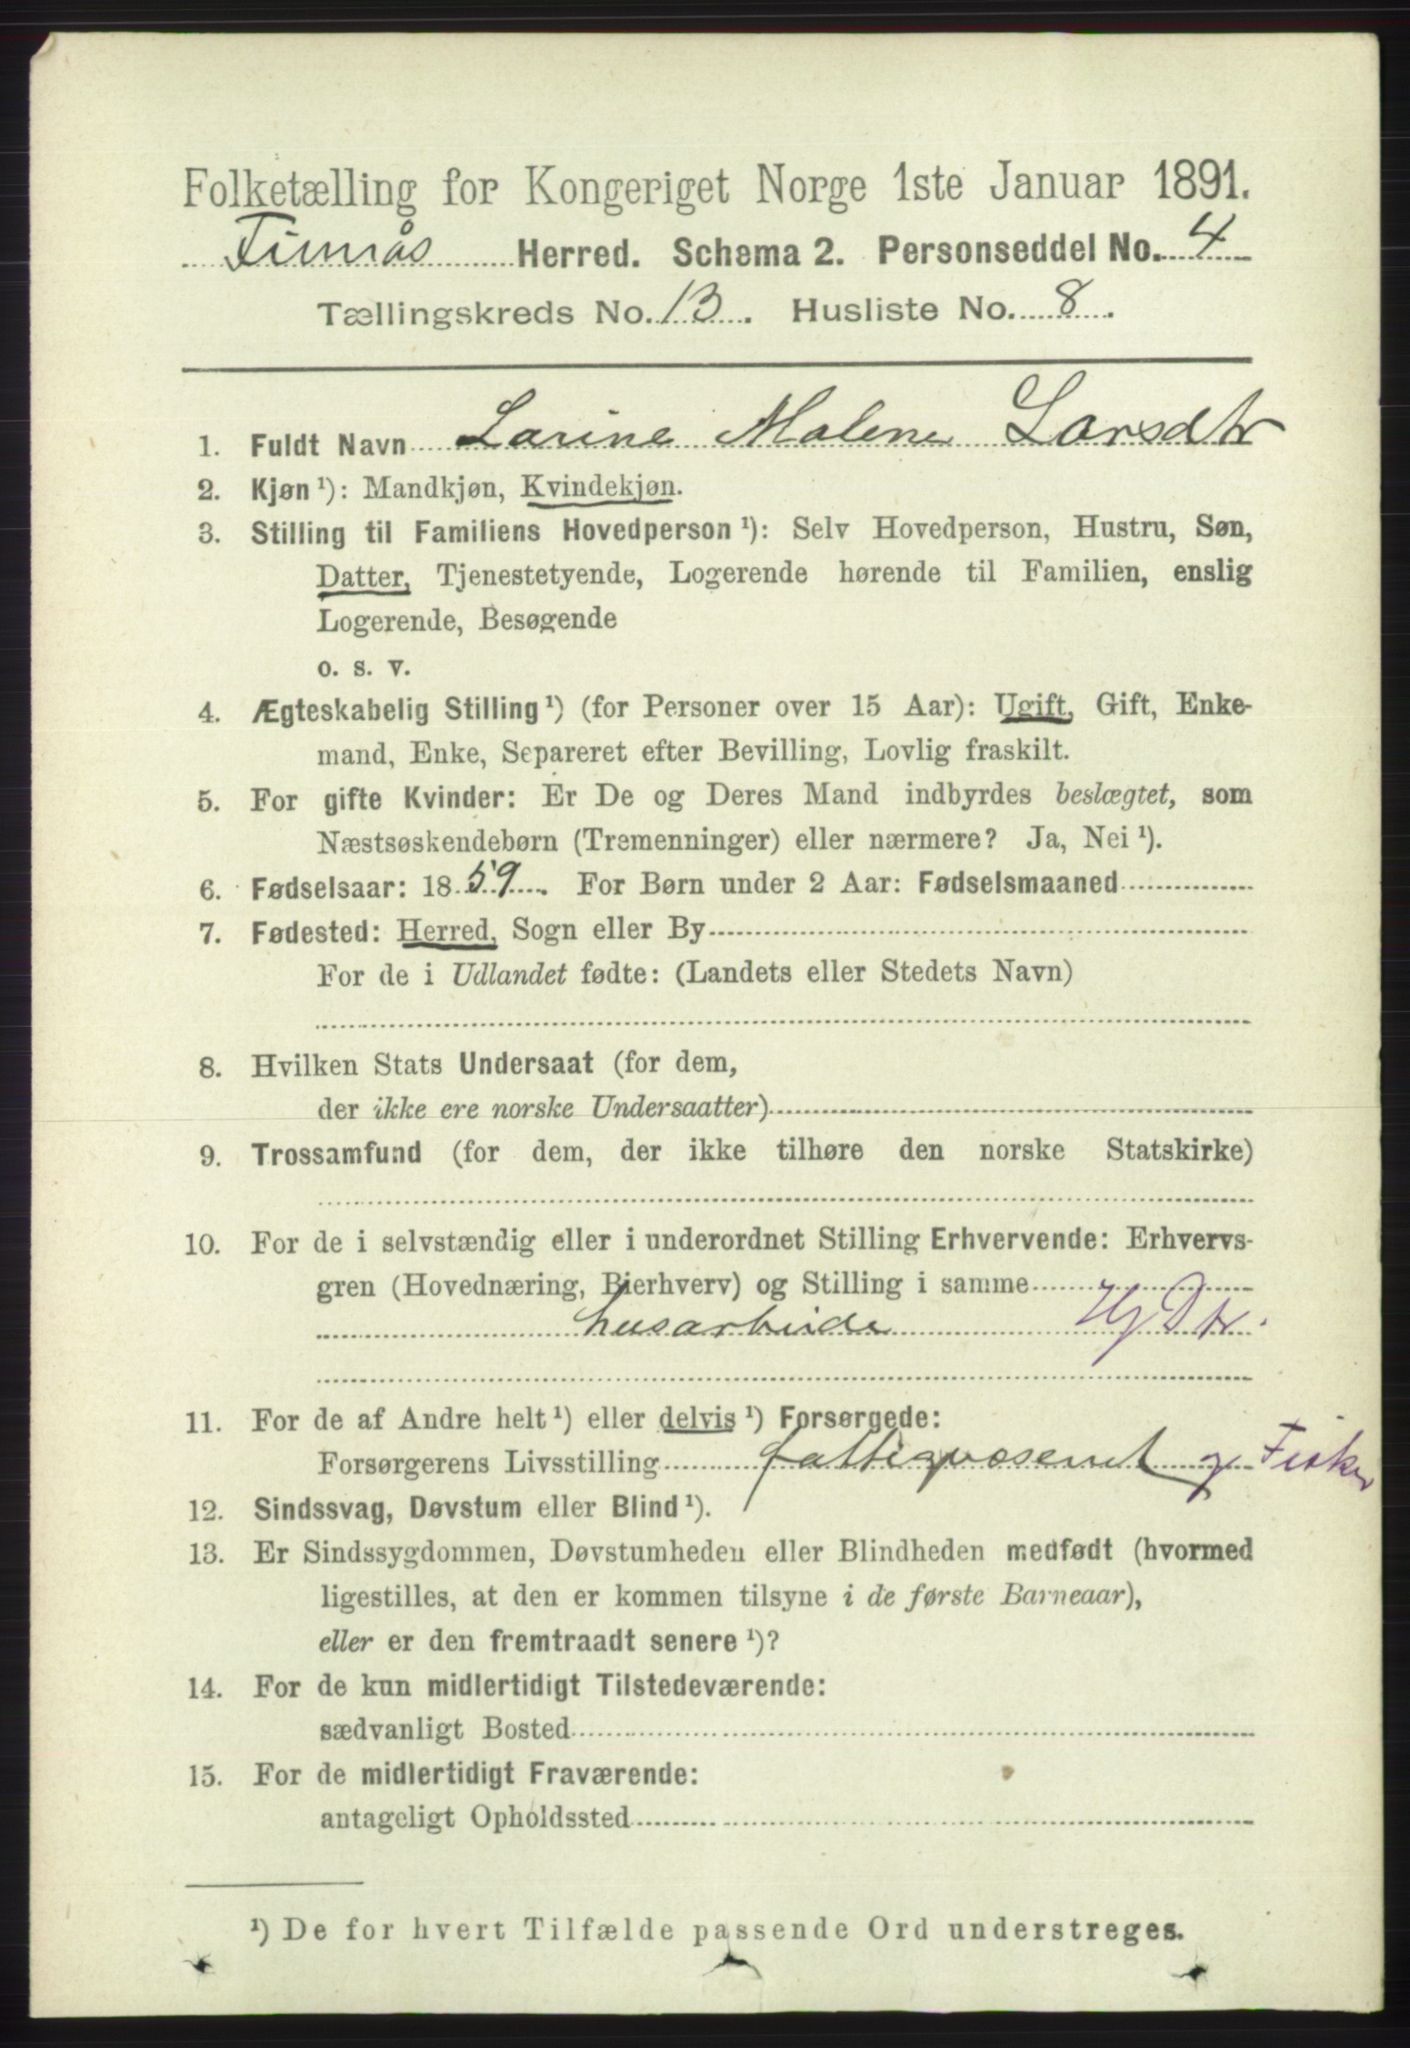 Folketælling for Kongeriget Norge 1ste Januar 1891.
Finnås Herred. Schema 2. Personseddel No. 4
Tællingskreds No. 13. Husliste No. 8.
1. Fuldt Navn Larine Malene Larsdtr
2. Kjøn ¹): Mandkjøn, Kvindekjøn.
3. Stilling til Familiens Hovedperson ¹): Selv Hovedperson, Hustru, Søn,
Datter, Tjenestetyende, Logerende hørende til Familien, enslig
Logerende, Besøgende
o. s. v.
4. Ægteskabelig Stilling ¹) (for Personer over 15 Aar): Ugift, Gift, Enke-
mand, Enke, Separeret efter Bevilling, Lovlig fraskilt.
5. For gifte Kvinder: Er De og Deres Mand indbyrdes beslægtet, som
Næstsøskendebørn (Tremenninger) eller nærmere? Ja, Nei ¹).
6. Fødselsaar: 1859. For Børn under 2 Aar: Fødselsmaaned
7. Fødested: Herred, Sogn eller By
For de i Udlandet fødte: (Landets eller Stedets Navn)
8. Hvilken Stats Undersaat (for dem,
der ikke ere norske Undersaatter)
9. Trossamfund (for dem, der ikke tilhøre den norske Statskirke)
10. For de i selvstændig eller i underordnet Stilling Erhvervende: Erhvervs-
gren (Hovednæring, Bierhverv) og Stilling i samme
husarbeide Hj Dtr.
11. For de af Andre helt ¹) eller delvis ¹) Forsørgede:
Forsørgerens Livsstilling fattigvæsenet g Fisker
12. Sindssvag, Døvstum eller Blind ¹).
13. Er Sindssygdommen, Døvstumheden eller Blindheden medfødt (hvormed
ligestilles, at den er kommen tilsyne i de første Barneaar),
eller er den fremtraadt senere ¹)?
14. For de kun midlertidigt Tilstedeværende:
sædvanligt Bosted
15. For de midlertidigt Fraværende:
antageligt Opholdssted
¹) De for hvert Tilfælde passende Ord understreges.